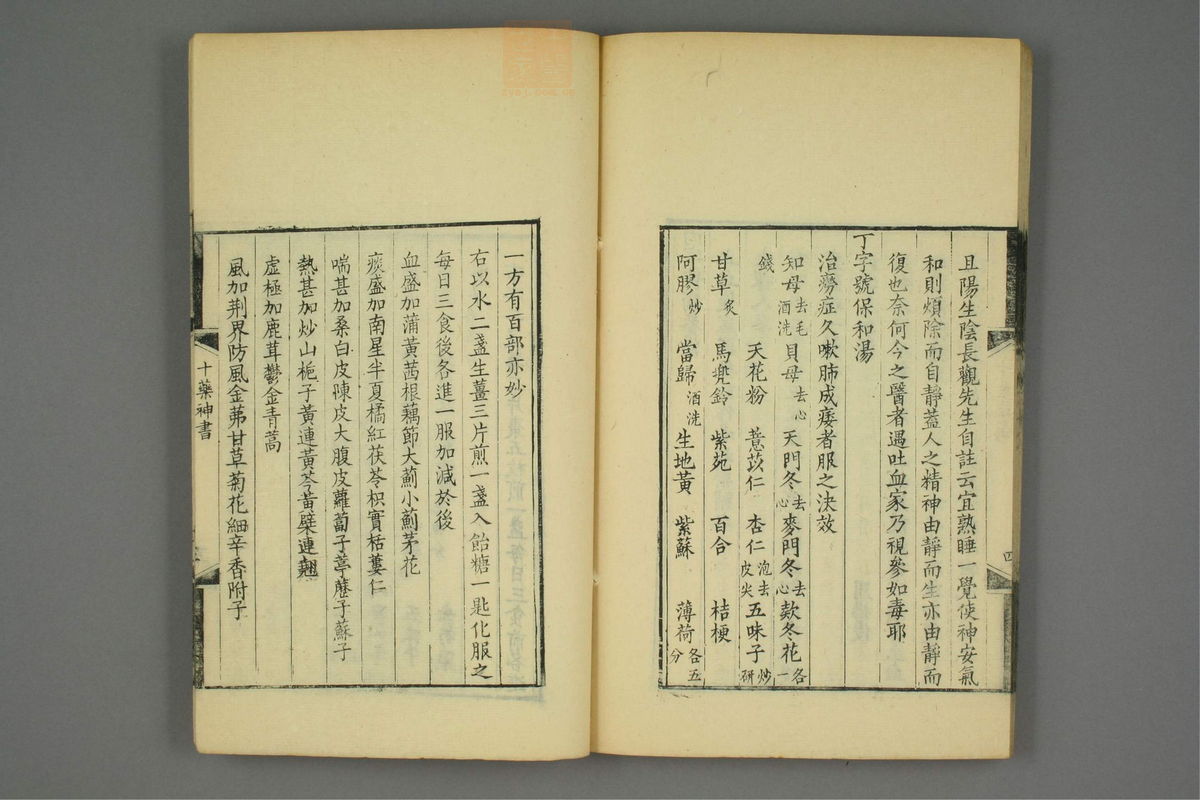 且陽生陰長觀先生自註云宜熟睡一覺使神安氣
和則煩除而自靜葢人之精神由靜而生亦由靜而
復也奈何今之醫者遇吐血家乃視參如毒耶
丁字號保和湯
治癆症久嗽肺成痿者服之決效
知母去毛酒洗 貝母去心 天門冬去心 麥門冬去心 欵冬花各一
錢 天花粉 薏苡仁 杏仁泡去皮尖 五味子炒研
甘草炙 馬兠鈴 紫苑 百合 桔梗
阿膠炒 當歸酒洗 生地黃 紫蘇 薄荷各五分
四
一方有百部亦妙
右以水二盞生薑三片煎一盞入飴糖一匙化服之
每日三食後各進一服加減於後
血盛加蒲黃茜根藕節大薊小薊茅花
痰盛加南星半夏橘紅茯苓枳實栝蔞仁
喘甚加桑白皮陳皮大腹皮蘿蔔子葶藶子蘇子
熱甚加炒山梔子黃連黃芩黃檗連翹
虛極加鹿茸鬱金青蒿
風加荆界防風金苐甘草菊花細辛香附子
十藥神書